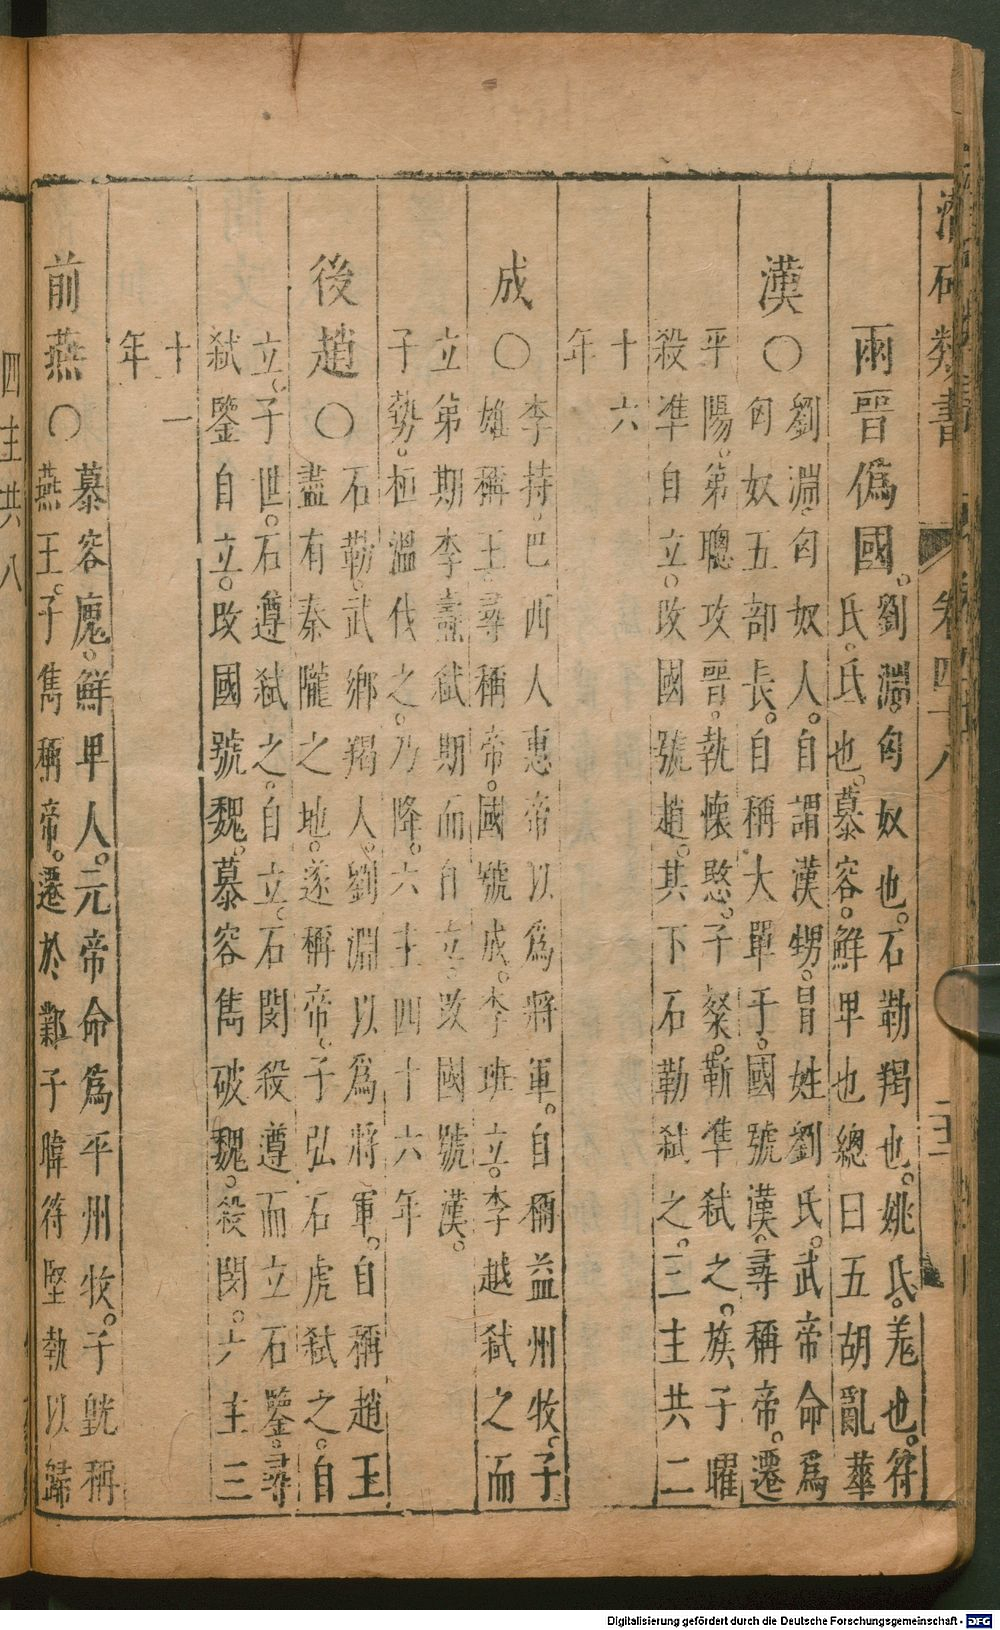 潛確類書 卷四十八
兩晉僞國。劉淵。匈奴也。石勒羯也。姚氏。羗也。符
氏。氐也。慕容。鮮卑也總曰五胡亂華
漢〇劉淵。匈奴人。自謂漢甥。冒姓劉氏。武帝命爲
匈奴五部長。自稱大單于。國號漢。尋稱帝。遷
平陽。第聰攻晉。執懷愍。子粲。靳準弑之。族子曜
殺準自立。改國號趙。其下石勒弑之。三主共二
十六
年
成〇李持。巴西人惠帝以爲將軍。自稱益州牧。子
雄稱王。尋稱帝。國號成。李班立。李越弑之而
立第期李壽弑期而自立。改國號漢。
子勢。桓溫伐之。乃降。六主四十六年
後趙〇石勒。武鄉羯人。劉淵以爲將軍。自稱趙王
盡有秦隴之地。遂稱帝。子弘石虎弑之。自
立。子世。石遵弑之。自立。石閔殺遵而立石鑒。尋
弑鑒自立。改國號魏。慕容雋破魏。殺閔。六主三
十一
年
前燕〇慕容廆。鮮卑人。元帝命爲平州牧。子皝稱
燕王。子雋稱帝。遷於鄴子暐符堅執以歸
四主共八
Digitalisierung gefördert durch die Deutsche Forschungsgemeinschaft - DFG